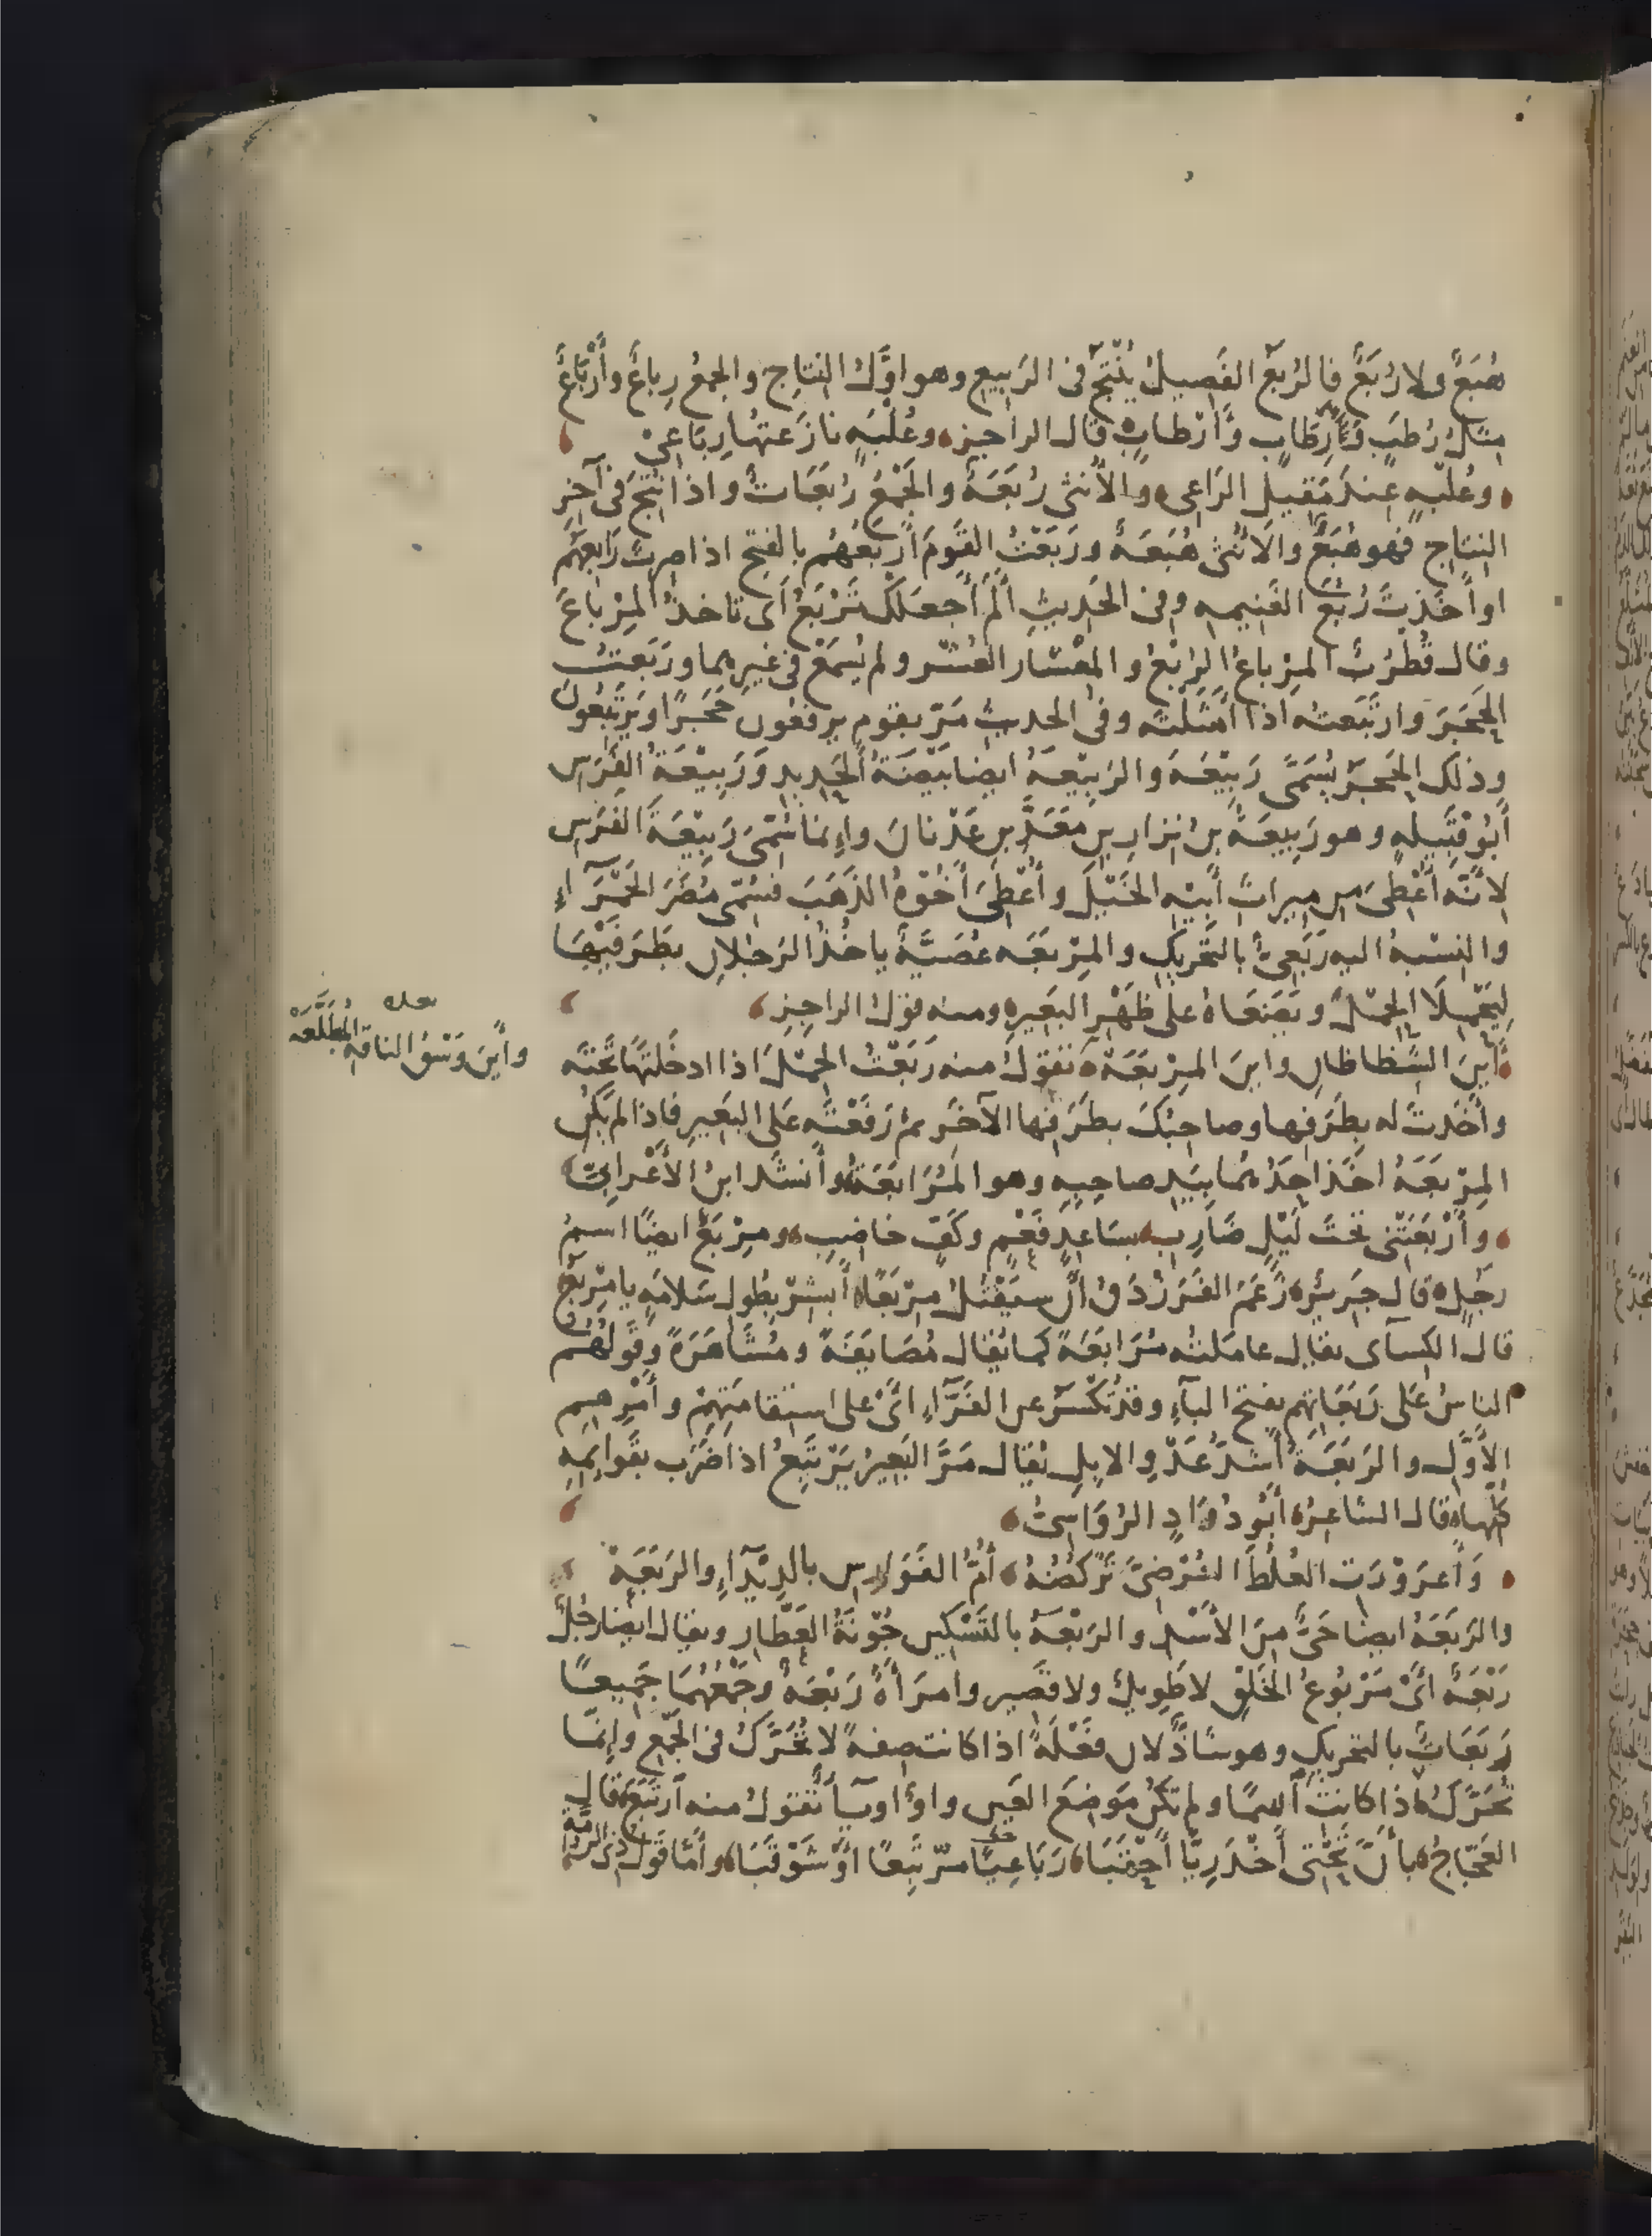 هُبَعٌ ولا رُبَعٌ فالرُبَعُ الفَصِيلُ يُنْتَجُ فى الرَبِيع وهو اوَّلُ النِتاجِ والجمعُ رِباعٌ وأَرْباعٌ
مثلُ رُطَبٍ ورِطَابٍ وَأَرْطابٍ قال الراجز وعُلْبَةٍ نازَعتُها رِبَاعِىْ
وعُلْبَةٍ عِندَ مَقِيلِ الرَاعِى والأُنثى رُبَعَةٌ والجَمْعُ رُبَعَاتٌ واذا نُتِجَ فى آخِرِ
النِتاجِ فهو هُبَعٌ والأُنثى هُبَعَةٌ ورَبَعْتُ القَومَ أَربَعُهُم بالفتح اذا صِرتَ رابِعَهُم
او أَخَذتَ رُبْعَ الغَنِيمه وفى الحَدِيثِ أَلم أَجعَلْكَ تَرْبَعُ أَى تاخذُ المِرْباعَ
وقال قُطْرُبٌ المِرْباعُ الرُبْعُ والمِعْشار العُشْر ولم يُسمَعْ فى غيرِهما ورَبَعتُ
الحَجَرَ وارتَبَعتُه اذا أَشَلْتَه وفى الحديث مَرّ بقوم يرفعون حَجَرًا ويَرتَبِعُونَ
وذلك الحَجَرُ يُسَمَّى رَبِيْعَةَ والرَبِيْعَةُ ايضا بَيْضَةُ الحَدِيدِ وَرَبِيْعَةُ الفَرَسِ
أَبُو قَبِيلهٍ وهو رَبِيعَةُ بنُ نِزارِ بنِ مَعَدِّ بنِ عَدْنانَ وإنما سُمّىَ رَبِيْعَةَ الفَرَسِ
لِأَنَّه أُعْطِىَ من مِيراثِ أَبِيْهِ الخَيْلَ وأُعْطِىَ أَخُوْهُ الذَهَبَ فسُمّى مُضَرَ الحَمْرَآءِ
والنِسْبةُ اليه رَبَعِىٌّ بالتَحْرِيكِ والمِرْبَعَه عُصَيَّةٌ ياخُذُ الرَجُلانِ بطَرَفَيْها
لِيَحْمِلَا الحِمْلَ ويَضَعَاهُ على ظَهْرِ البَعِيرِ ومنه قولُ الراجِزِ
أَينَ الشِّظاظانِ واينَ المِرْبَعَهْ تقولُ منه رَبَعْتُ الحِمْلَ اذا ادخَلْتَها تَحْتَه
بعده
وأَينَ وَسْقُ الناقةِ المُطَبَّعَهْ
وأَخَذتَ له بِطَرَفِها وصاحِبُكَ بطَرَفِها الآخَر ثم رَفَعْتَه عَلى البَعِيرِ فاذا لم تَكُن
المِرْبَعَةُ اخَذَ احَدُهُما بِيَدِ صاحِبِهِ وهو المُرَابَعَةُ وأَنشَدَ ابنُ الأَعْرابِىّ
وأَرْبَعَتْنى تحتَ لَيْلٍ ضَارِبِ بسَاعِدٍ فَعْمٍ وكَفٍّ خاضِبِ ومِرْبَعٌ ايضًا اسمُ
رجُلٍ قال جَرِيْرٌ زَعَمَ الفَرَزْدَقُ أَنْ سيَقْتُلُ مِرْبَعًا أَبشِرْ بِطُولِ سَلامَةٍ يا مِرْبَعُ
قال الكِسآى يقال عامَلتُه مُرَابَعَةً كما يُقال مُصَايَفَةً ومُشَاهَرَةً وقَولُهُم
الناسُ عَلى رَبَعَاتِهم بفتح البآءِ وقد تُكْسَرُ عن الفَرَّآءِ اىْ على استِقامَتِهِم وأَمْرِهِم
الأَوَّلِ والرَبَعَةُ أَشدُّ عَدْوِ الابِلِ يُقال مَرَّ البَعِيرُ يَرْتَبِعُ اذا ضَرَب بقَوايِمِهِ
كُلِّها قال الشاعِرُ أَبُو دُوَادٍ الرُوَاسِىُّ
وَأعرَوْرَتِ العُلُطَ العُرْضِىَّ تَرْكُضُهُ أُمُّ الفَوَارِسِ بالدِئْدَآءِ والرَبَعَهْ
والرَبَعَةُ ايضا حَىٌّ مِنَ الأَسْدِ والرَبْعَةُ بالتَسْكِينِ جُوْنَةُ العَطَّارِ ويقال ايضا رجُلٌ
رَبْعَةٌ اىْ مَرْبُوعُ الخَلْقِ لا طَوِيلٌ ولا قَصِير وامرَأَةٌ رَبْعَةٌ وجَمْعُهُمَا جَمِيعًا
رَبَعَاتٌ بالتحريكِ وهو شاذٌّ لان فَعْلَةً اذا كانت صِفةً لا تُحَرَّكُ فى الجَمْع وإنَّما
تُحَرَّكُ اذا كانتْ اسمًا ولم تَكُن مَوضِعَ العَينِ واوٌ او يآءٌ تقولُ منه ارتَبَعَ قال
العَجَّاجُ بأَنَّ تَحْتى أَخْدَرِيًّا أَحقَبَا رَبَاعِيًا مرْتَبِعًا اوْ شَوْقَبَا وأَمّا قَولُ ذى الرُمَّة